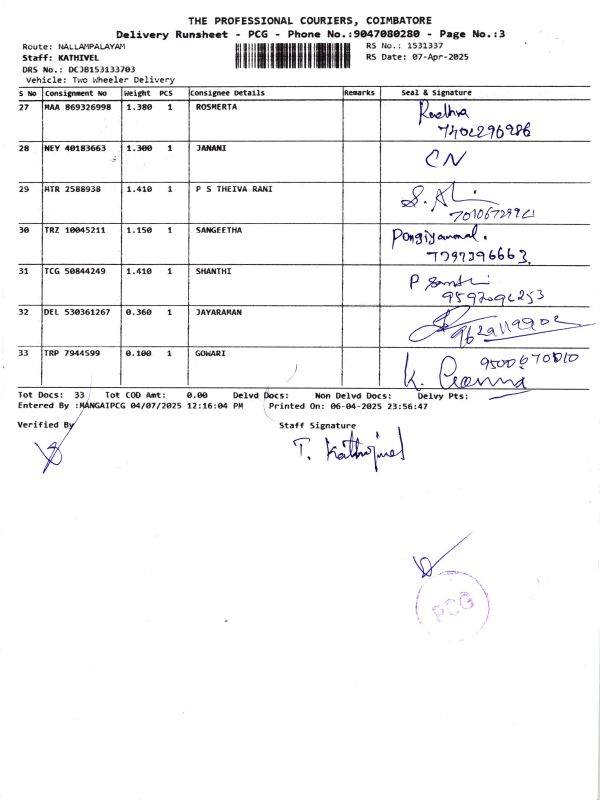 THE PROFESSIONAL COURIERS, COIMBATORE
Delivery Runsheet - PCG - Phone No.:9047080280 - Page No.:3
Route: NALLAMPALAYAM RS No.: 1531337
Staff: KATHIVEL RS Date: 07-Apr-2025
DRS No.: DCJB153133703
Vehicle: Two Wheeler Delivery
S No Consignment No Weight PCS Consignee Details Remarks Seal & Signature
27 MAA 869326998 1.380 1 ROSMERTA Radhra
7402296986
28 NEY 40183663 1.300 1 JANANI CN
29 MTR 2588938 1.410 1 P S THEIVA RANI
30 TRZ 10045211 1.150 1 SANGEETHA Pongiyammal.
7397396663.
31 TCG 50844249 1.410 1 SHANTHI P
32 DEL 530361267 0.360 1 JAYARAMAN
33 TRP 7944599 0.100 1 GOWARI K.
Tot Docs: 33 Tot COD Amt: 0.00 Delvd Docs: Non Delvd Docs: Delvy Pts:
Entered By :MANGAIPCG 04/07/2025 12:16:04 PM Printed On: 06-04-2025 23:56:47
Verified By Staff Signature
T.
PCG